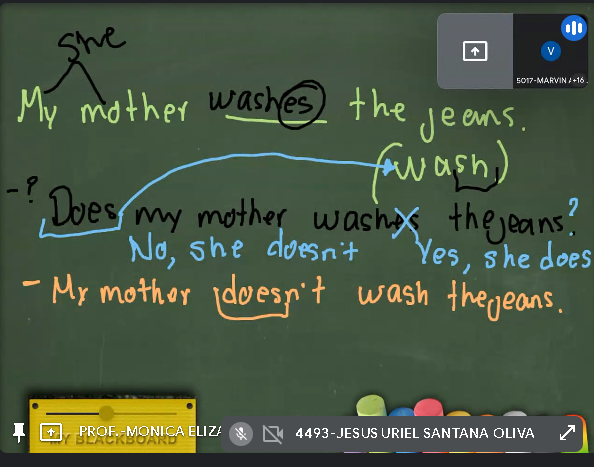 She
My mother washes the jeans.
(wash)
-? Does my mother washes the jeans?
No, she doesn't Yes, she does
- My mother doesn't wash the jeans.
V
5017-MARVIN A +16...
PROF.-MONICA ELIZA
MY BLACKBOARD
4493-JESUS URIEL SANTANA OLIVA